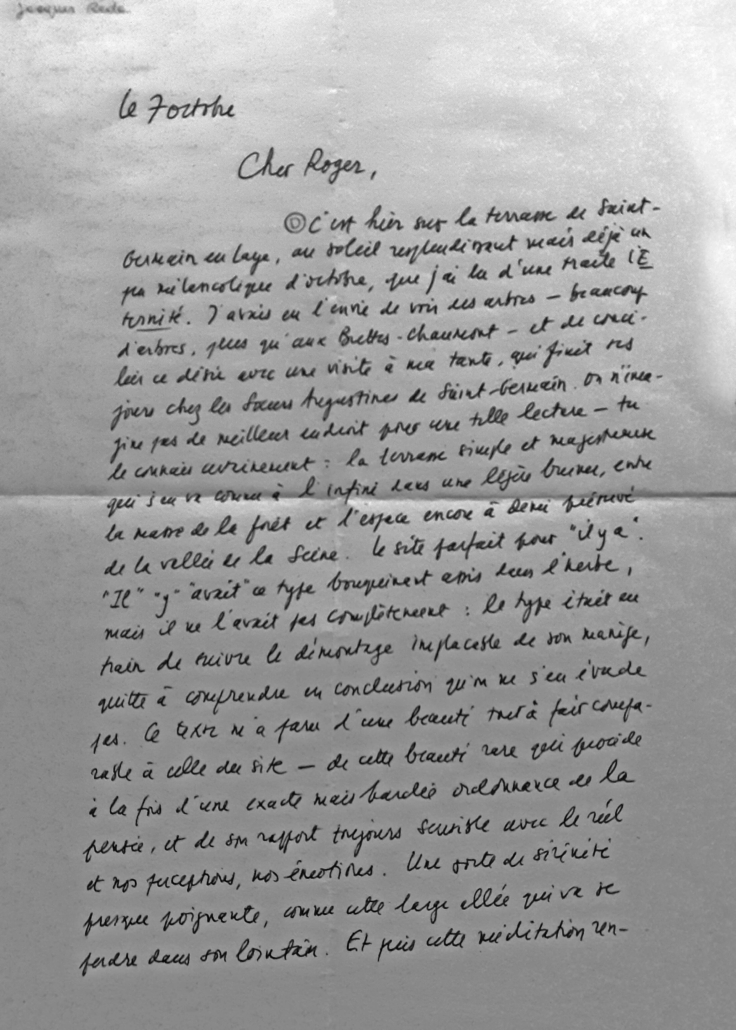 Jacques Réda
le 7 octobre
Cher Roger,
C'est hier sur la terrasse de Saint-
Germain en Laye, au soleil resplendissant mais déjà un
peu mélancolique d'octobre, que j'ai lu d'une traite l'É
ternité. J'avais eu l'envie de voir des arbres — beaucoup
d'arbres, plus qu'aux Buttes-Chaumont — et de conci-
lier ce désir avec une visite à ma tante, qui finit ses
jours chez les Sœurs Augustines de Saint-Germain. On n'ima-
gine pas de meilleur endroit pour une telle lecture — tu
le connais certainement : la terrasse simple et majestueuse
qui s'en va comme à l'infini dans une légère brume, entre
la masse de la forêt et l'espace encore à demi préservé
de la vallée de la Seine. Le site parfait pour "il y a".
"Il" "y" "avait" ce type bouquinant assis dans l'herbe,
mais il ne l'avait pas complètement : le type était en
train de suivre le démontage implacable de son manège,
quitte à comprendre en conclusion qu'on ne s'en évade
pas. Ce texte m'a paru d'une beauté tout à fait compa-
rable à celle du site — de cette beauté rare qui procède
à la fois d'une exacte mais hardie ordonnance de la
pensée, et de son rapport toujours sensible avec le réel
et nos perceptions, nos émotions. Une sorte de sérénité
presque poignante, comme cette large allée qui va se
perdre dans son lointain. Et puis cette méditation ren-